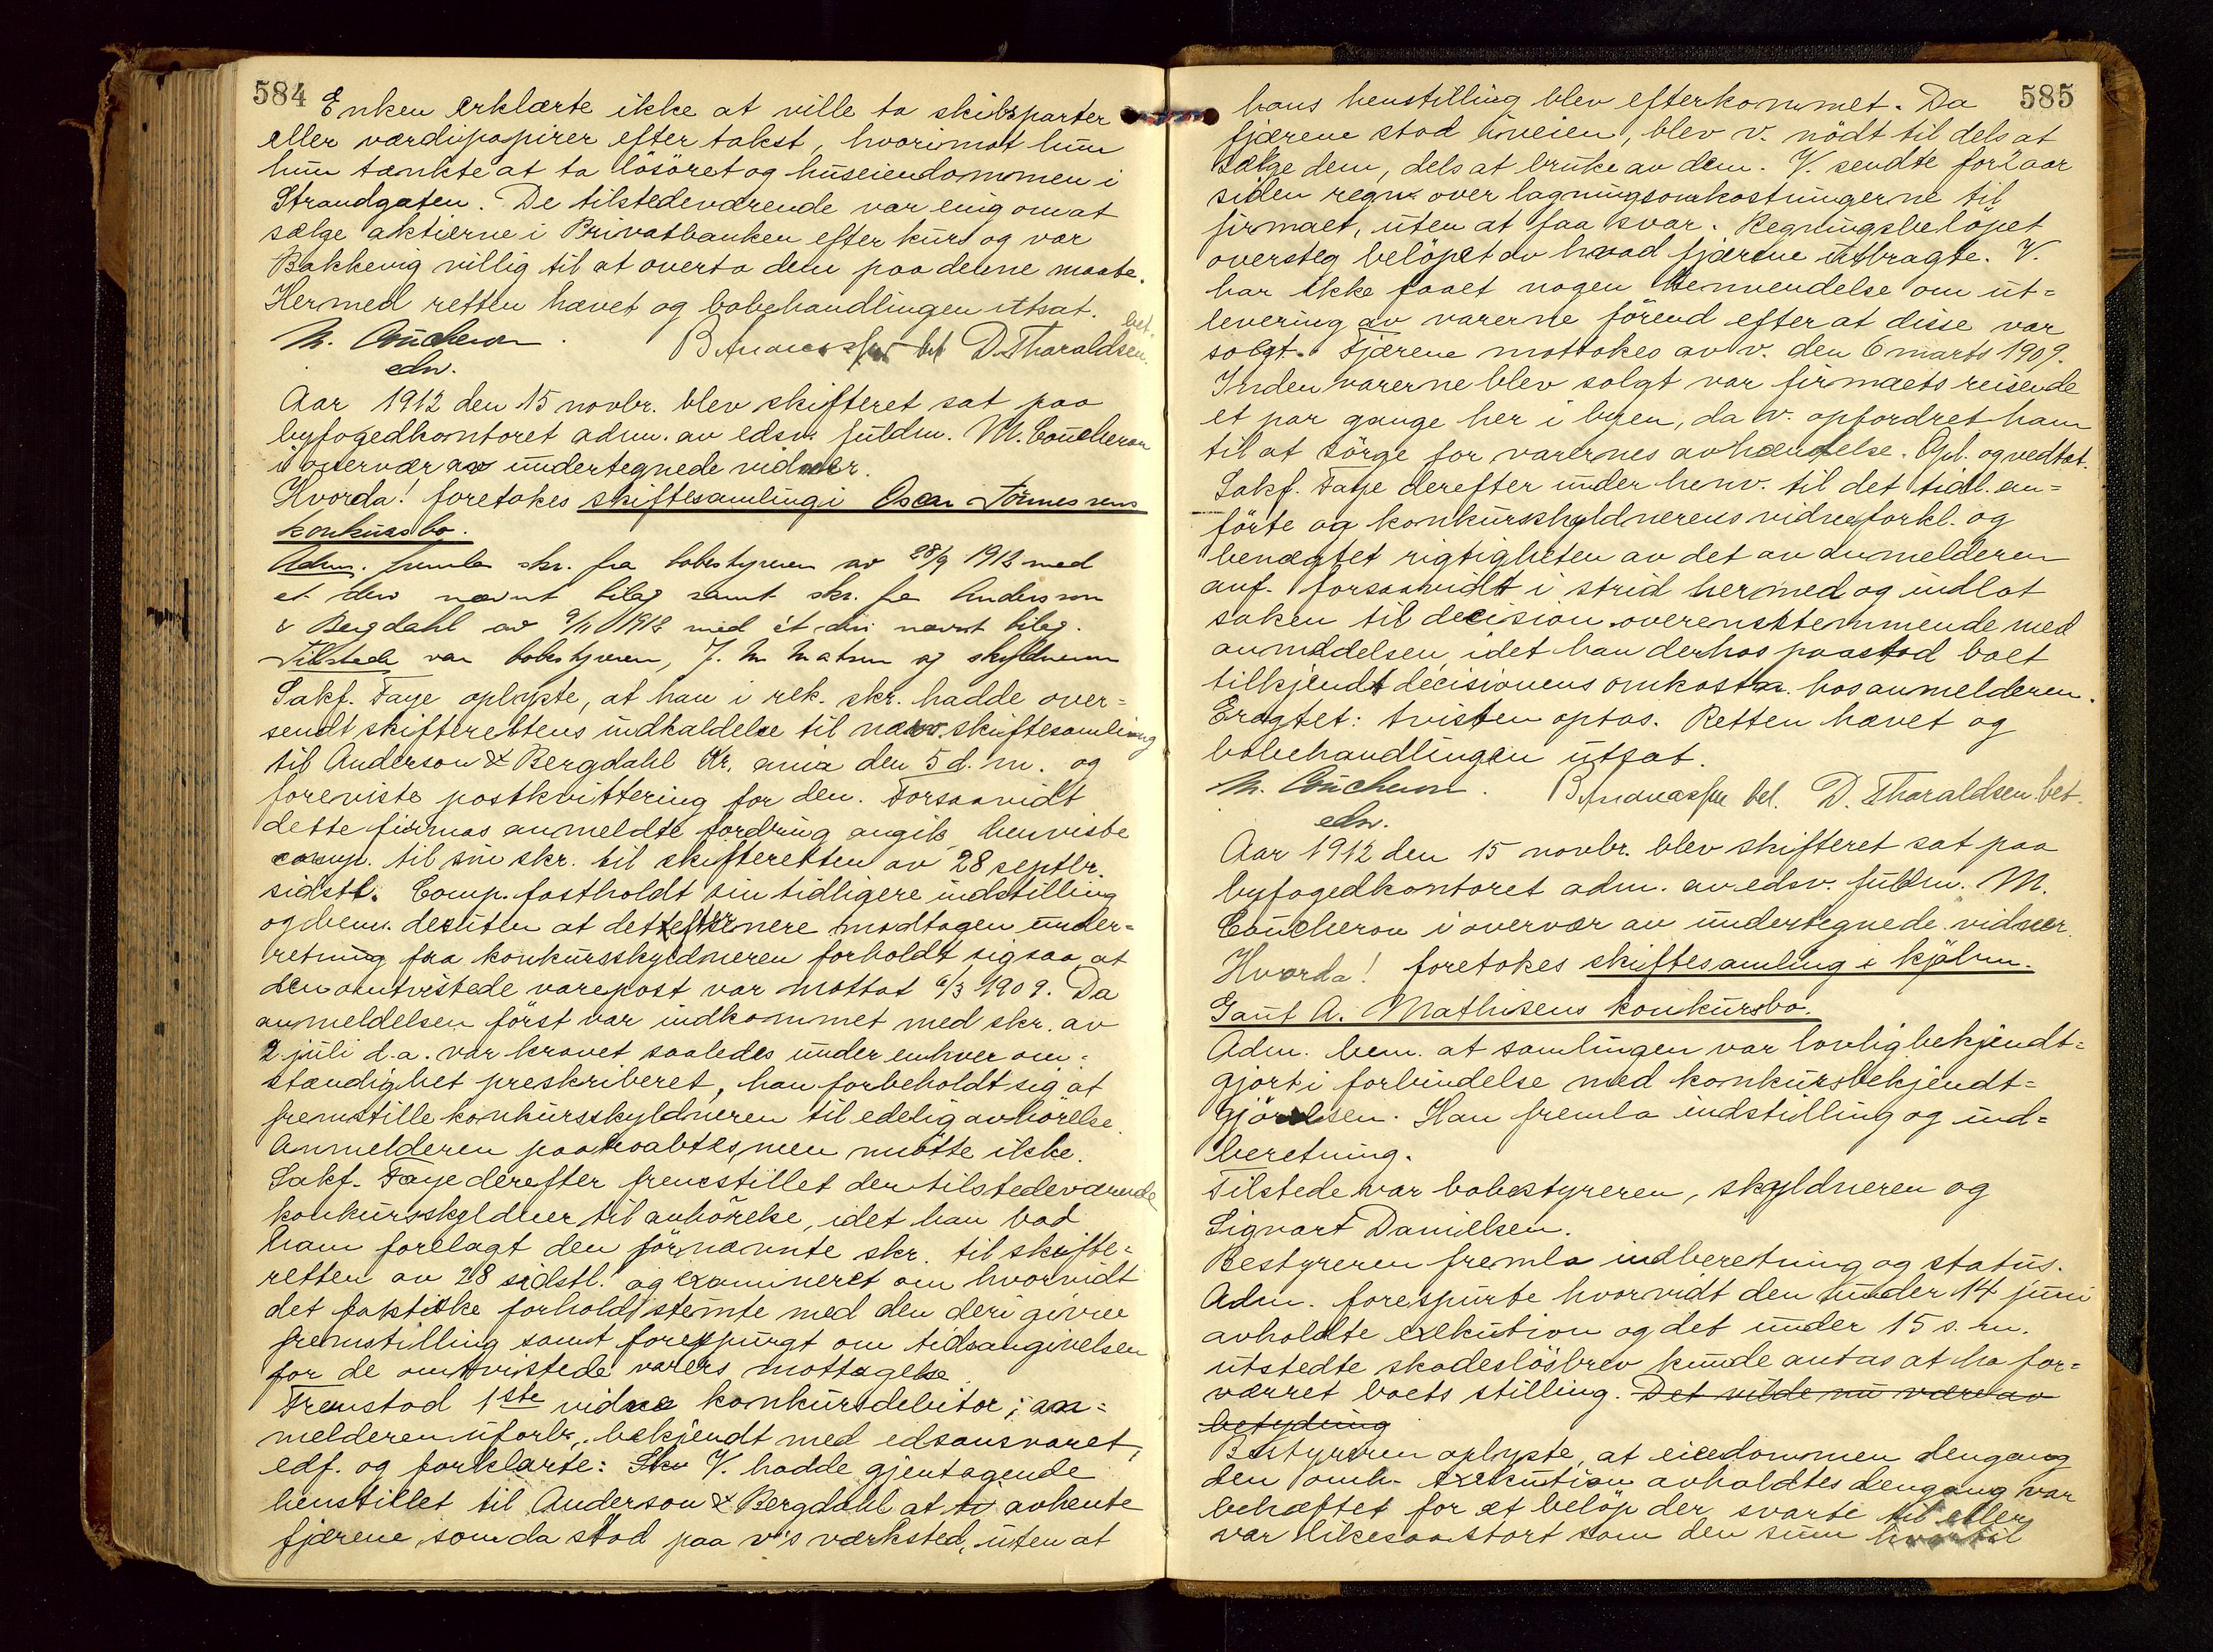 584
Enken erklærte ikke at ville ta skibsparter
eller værdipapirer efter takst, hvorimot hun
hun tænkte at ta lösöret og huseiendommen i
Strandgaten. De tilstedeværende var enig om at
sælge aktierne i Privatbanken efter kurs og var
Bakkevig villig til at overta dem paa denne maate.
Hermed retten hævet og bobehandlingen utsat.
M. Coucheron. B. Andreassen bet D. Tharaldsen bet.
edsv.
Aar 1912 den 15 novbr. blev skifteret sat paa
byfogedkontoret adm. av edsv. fuldm. M. Coucheron
i overvær av undertegnede vidner.
Hvorda! foretokes skiftesamling i Oscar Tönnessens
konkursbo.
Adm. fremla skr. fra bobestyreren av 28/9 1912 med
et deri nævnt bilag samt skr. fra Anderson
& Bergdahl av 9/11 1912 med et deri nævnt bilag.
Tilstede var bobestyreren, J. M. Matsen og skyldneren
Sakf. Faye oplyste, at han i rek. skr. hadde over=
sendt skifterettens indkaldelse til nærv. skiftesamling
til Anderson & Bergdahl Kr.ania den 5 d. m. og
foreviste postkvittering for den. Forsaavidt
dette firmas anmeldte fordring angik henviste
comp. til sin skr. til skifteretten av 28 septbr.
sidstl. Comp. fastholdt sin tidligere indstilling
og bem. desuten at det efter senere modtagen under=
retning fra konkursskyldneren forholdt sig saa, at
den omtvistede varepost var mottat 6/3 1909. Da
anmeldelsen först var indkommet med skr. av
2 juli d.a. var kravet saaledes under enhver om=
stændighet preskriberet, han forbeholdt sig at
fremstille konkursskyldneren til edelig avhörelse.
Anmelderen paaroabtes, men mötte ikke.
Sakf. Faye derefter fremstillet den tilstedeværende
konkursskyldner til avhörelse, idet han bad
ham forelagt den förnævnte skr. til skifte=
retten av 28 sidstl. og examineret om hvorvidt
det faktiske forhold stemte med den deri givne
fremstilling samt forespurgt om tidsangivelsen
for de omtvistede varers mottagelse.
Fremstod 1ste vidne konkursdebitor; an=
melderen uforb., bekjendt med edsansvaret,
edf. og forklarte: Sku V. hadde gjentagende
henstillet til Anderson & Bergdahl at avhente
fjærene, som da stod paa v's værksted, uten at
585
hans henstilling blev efterkommet. Da
fjærene stod iveien, blev v. nödt til dels at
sælge dem, dels at bruke av dem. V. sendte for 2 aar
siden regn. over lagningsomkostningerne til
firmaet, uten at faa svar. Regningsbelöpet
oversteg belöpet av hvad fjærene utbragte. V.
har ikke faaet nogen henvendelse om ut=
levering av varerne förend efterat disse var
solgt. Fjærene mottokes av v. den 6 marts 1909.
Inden varerne blev solgt var firmaets reisende
et par gange her i byen, da v. opfordret ham
til at sörge for varernes avhændelse. Opl. og vedtat.
Sakf. Faye derefter under henv. til det tidl. an=
förte og konkursskyldnerens vidneforkl. og
benægtet rigtigheten av det av anmelderen
anf. forsaavidt i strid hermed og indlot
saken til decision overensstemmende med
anmeldelsen, idet han derhos paastod boet
tilkjendt decisionens omkostn. hos anmelderen.
Eragtet: tvisten optas. Retten hævet og
bobehandlingen utsat.
M. Coucheron. B. Andreassen bet. D. Tharaldsen bet.
edsv.
Aar 1912 den 15 novbr. blev skifteret sat paa
byfogedkontoret adm. av edsv. fuldm. M.
Coucheron i overvær av undertegnede vidner
Hvorda! foretokes skiftesamling i kjöbm.
Gaut A. Mathisens konkursbo.
Adm. bem. at samlingen var lovlig bekjendt=
gjort i forbindelse med konkursbekjendt=
gjörelsen. Han fremla indstilling og ind=
beretning.
Tilstede var bobestyreren, skyldneren og
Sigvart Danielsen.
Bestyreren fremla indberetning og status.
Adm. forespurte hvorvidt den under 14 juni
avholdte exekution og det under 15 s. m.
utstedte skadeslösbrev kunde antas at ha for=
værret boets stilling. Det vilde nu være av
betydning
Bestyreren oplyste, at eiendommen dengang
den omh. exekution avholdtes dengang var
behæftet for et belöp der svarte til eller
var likesaa stort som den sum hvortil